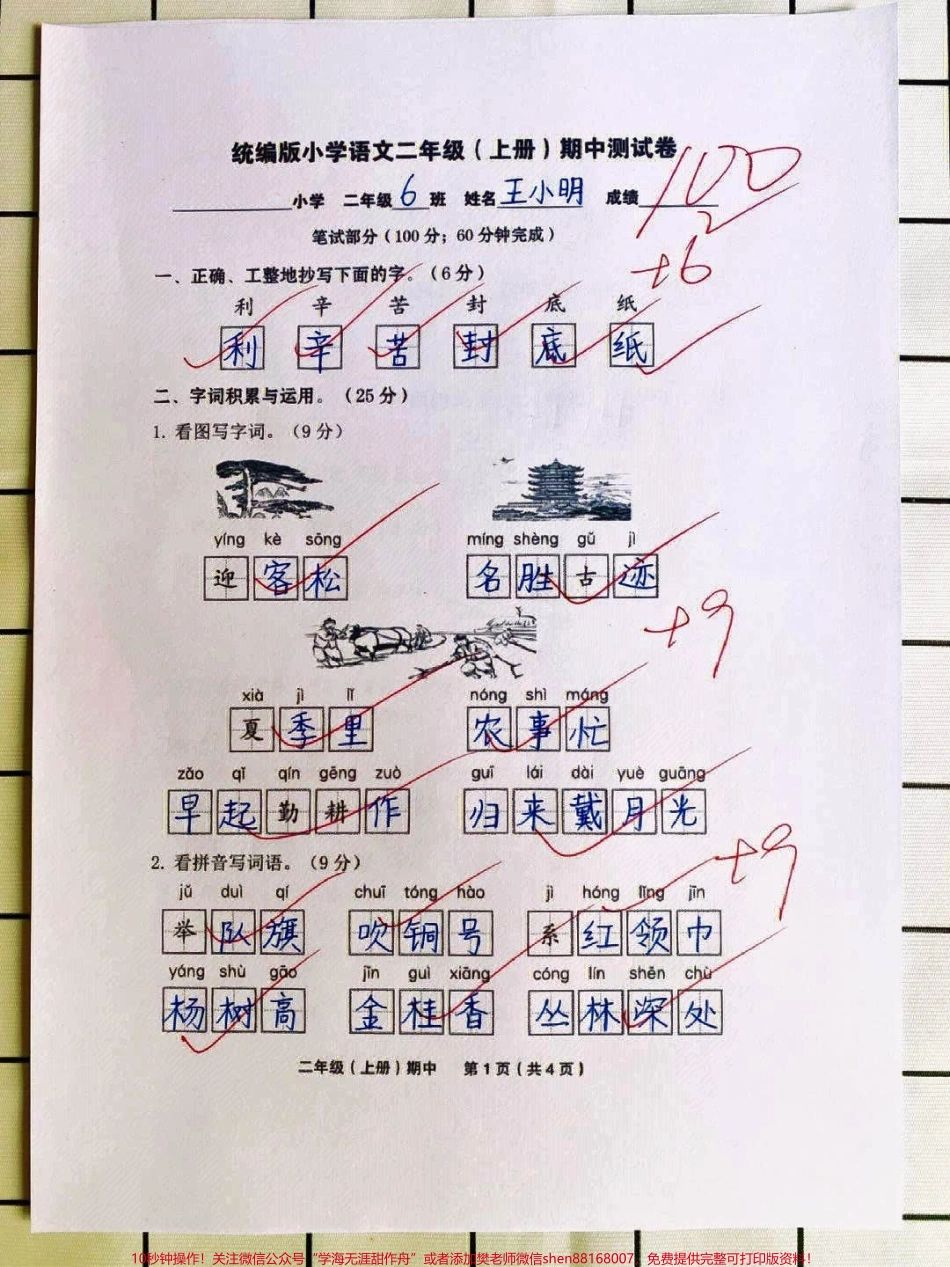 统编版小学语文二年级（上册）期中测试卷
小学 二年级6班 姓名王小明 成绩100
2
笔试部分（100分；60分钟完成）
一、正确、工整地抄写下面的字。（6分） +6
利 辛 苦 封 底 纸
利 辛 苦 封 底 纸
二、字词积累与运用。（25分）
1. 看图写字词。（9分）
yíng kè sōng míng shèng gǔ jì
迎客松 名胜古迹
+9
xià jì lǐ nóng shì máng
夏季里 农事忙
zǎo qǐ qín gēng zuò guī lái dài yuè guāng
早起勤耕作 归来戴月光
2. 看拼音写词语。（9分） +9
jǔ duì qí chuī tóng hào jì hóng lǐng jīn
举队旗 吹铜号 系红领巾
yáng shù gāo jīn guì xiāng cóng lín shēn chù
杨树高 金桂香 丛林深处
二年级（上册）期中 第1页（共4页）
10秒钟操作！关注微信公众号“学海无涯甜作舟”或者添加樊老师微信shen88168007，免费提供完整可打印版资料！